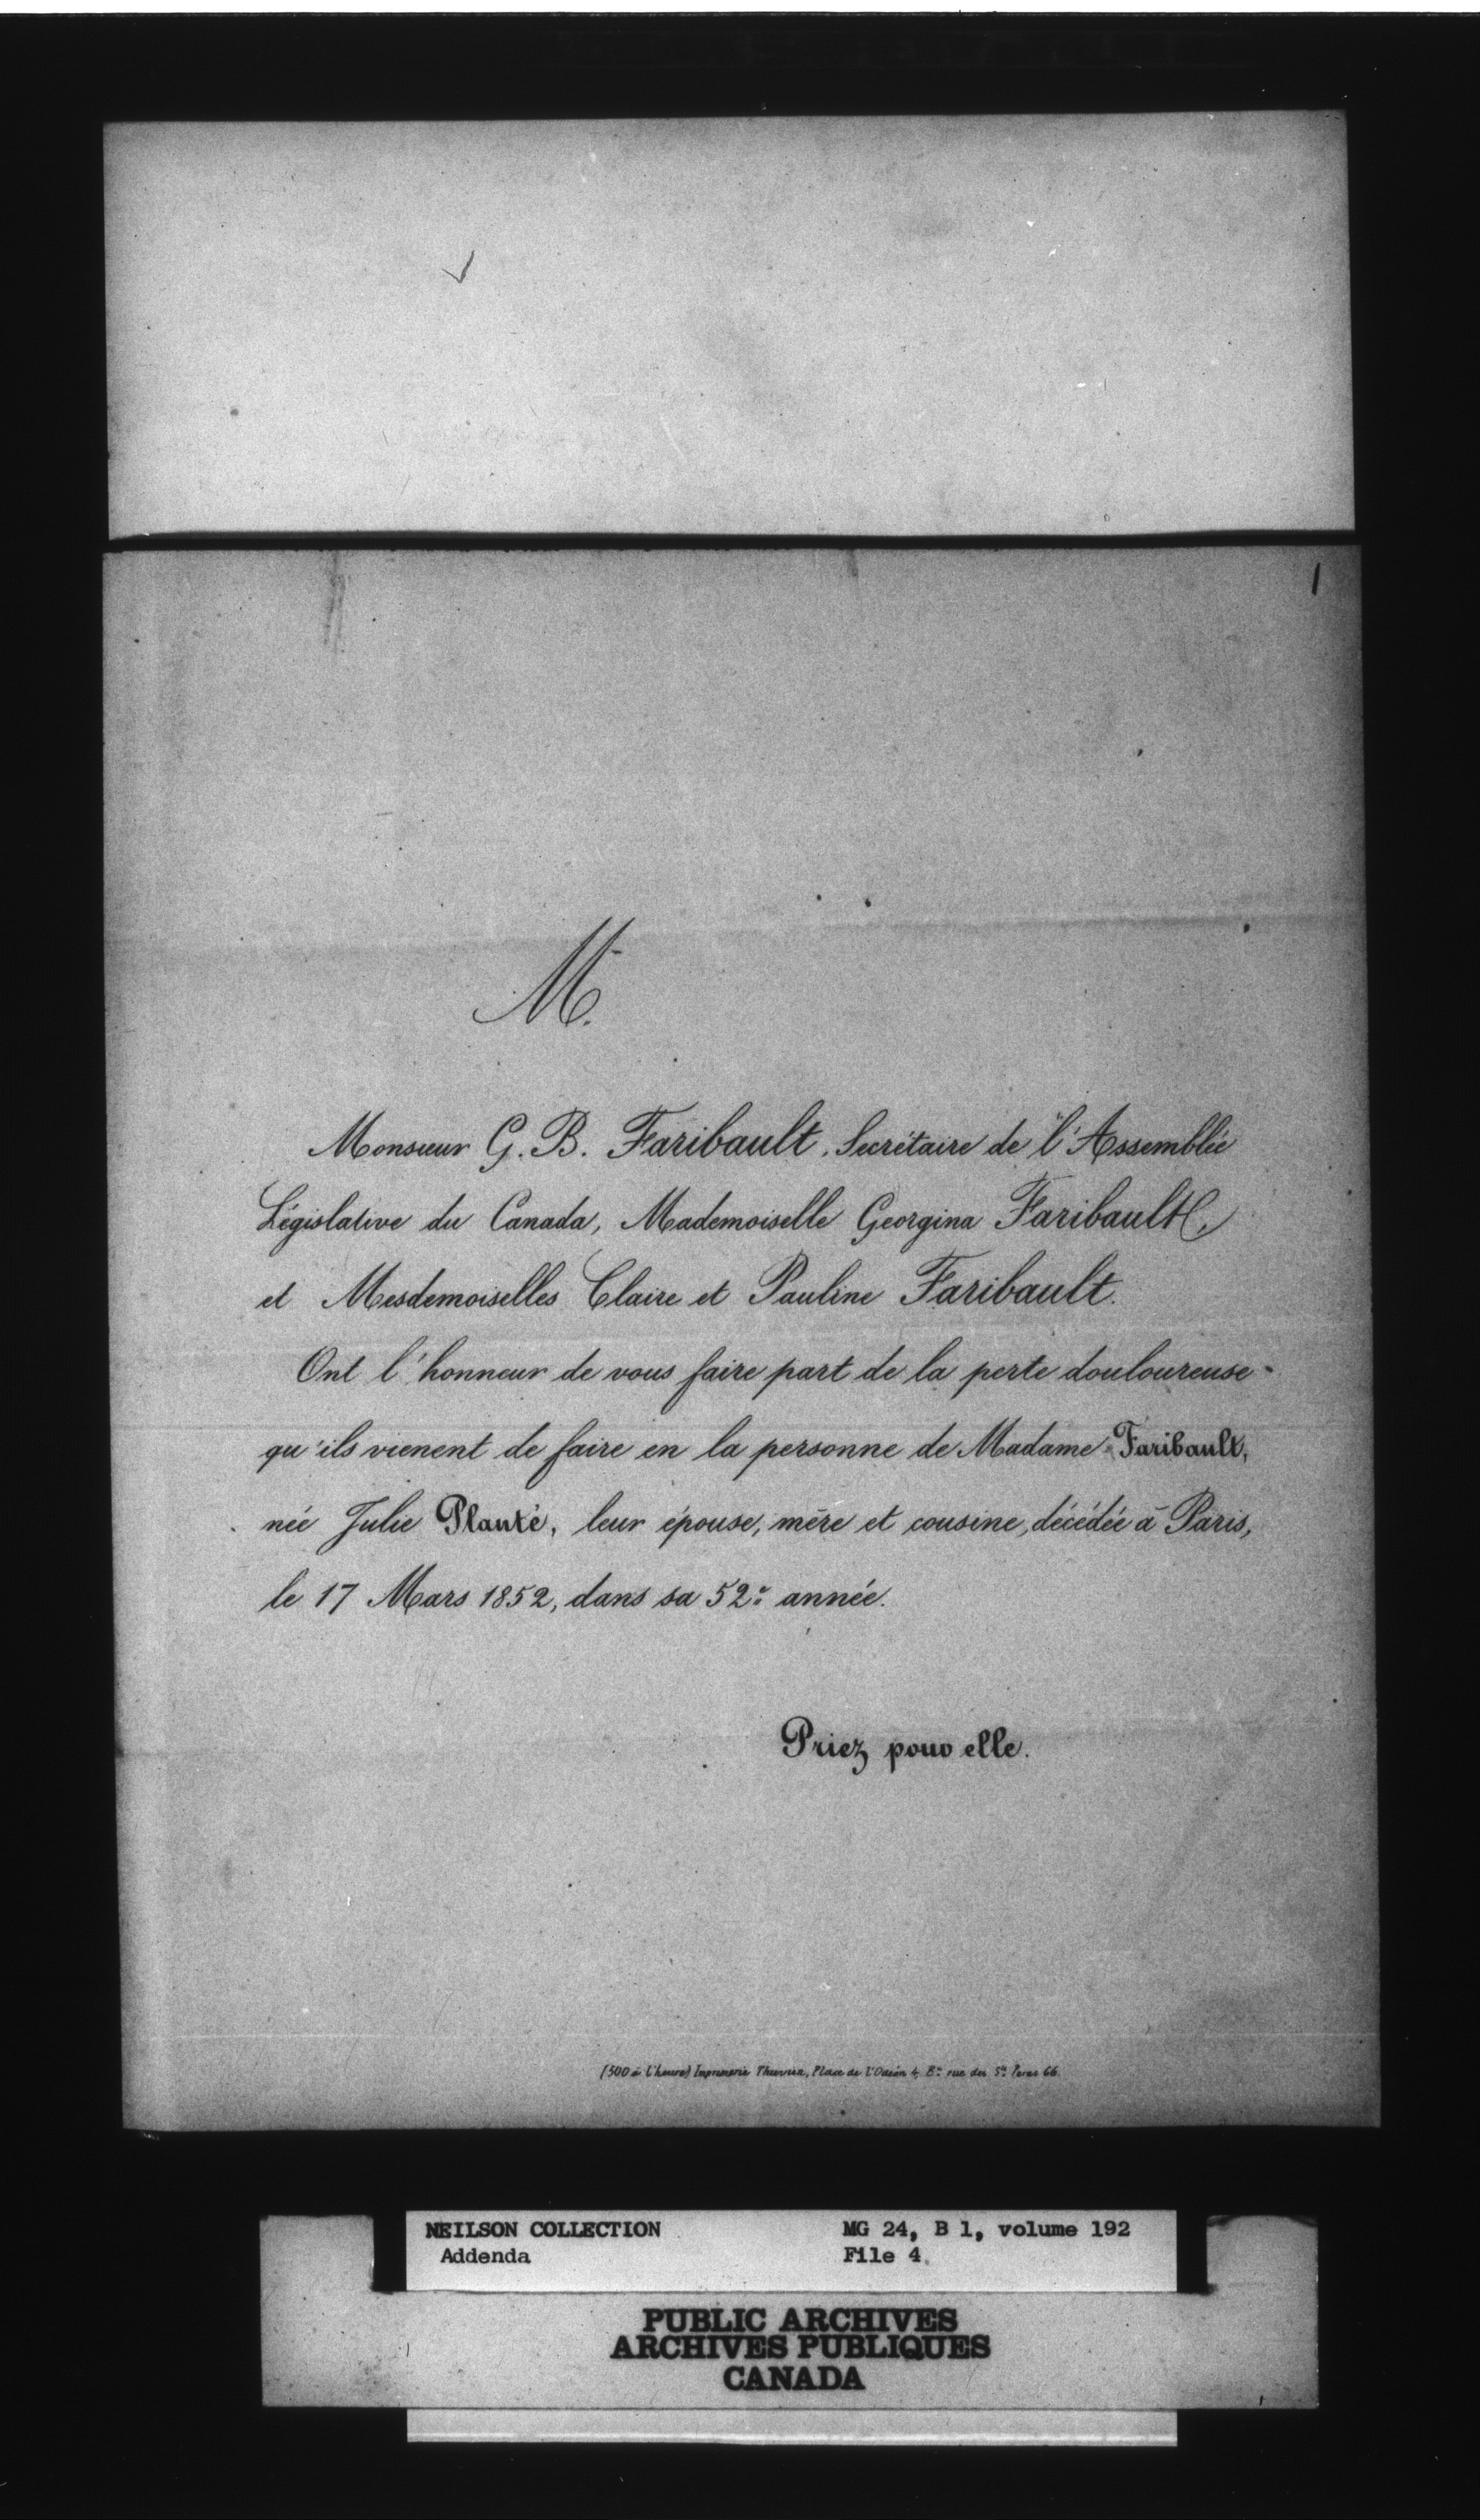 1
M.
Monsieur G. B. Faribault, Secrétaire de l'Assemblée
Législative du Canada, Mademoiselle Georgina Faribault,
et Mesdemoiselles Claire et Pauline Faribault.
Ont l'honneur de vous faire part de la perte douloureuse
qu'ils vienent de faire en la personne de Madame Faribault,
née Julie Planté, leur épouse, mère et cousine, décédée à Paris,
le 17 Mars 1852, dans sa 52e année.
Priez pour elle.
(500 à l'heure) Imprimerie Place de l'Odéon 4, rue des Sts Pères 66.
NEILSON COLLECTION MG 24, B 1, volume 192
Addenda File 4.
PUBLIC ARCHIVES
ARCHIVES PUBLIQUES
CANADA